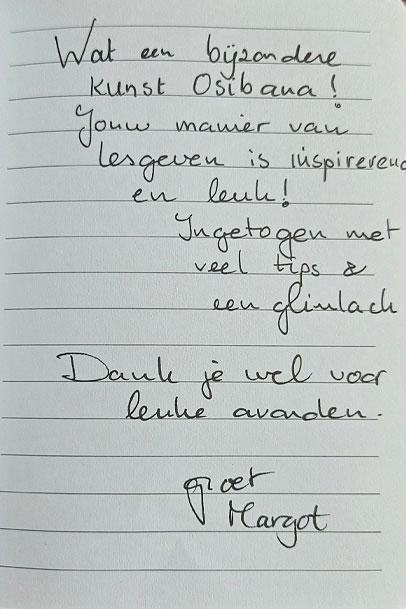 Wat een bijzondere
kunst Ošibana!
Jouw manier van
lesgeven is inspirerend
en leuk!
Ingetogen met
veel tips &
een glimlach
Dank je wel voor
leuke avonden.
groet
Margot